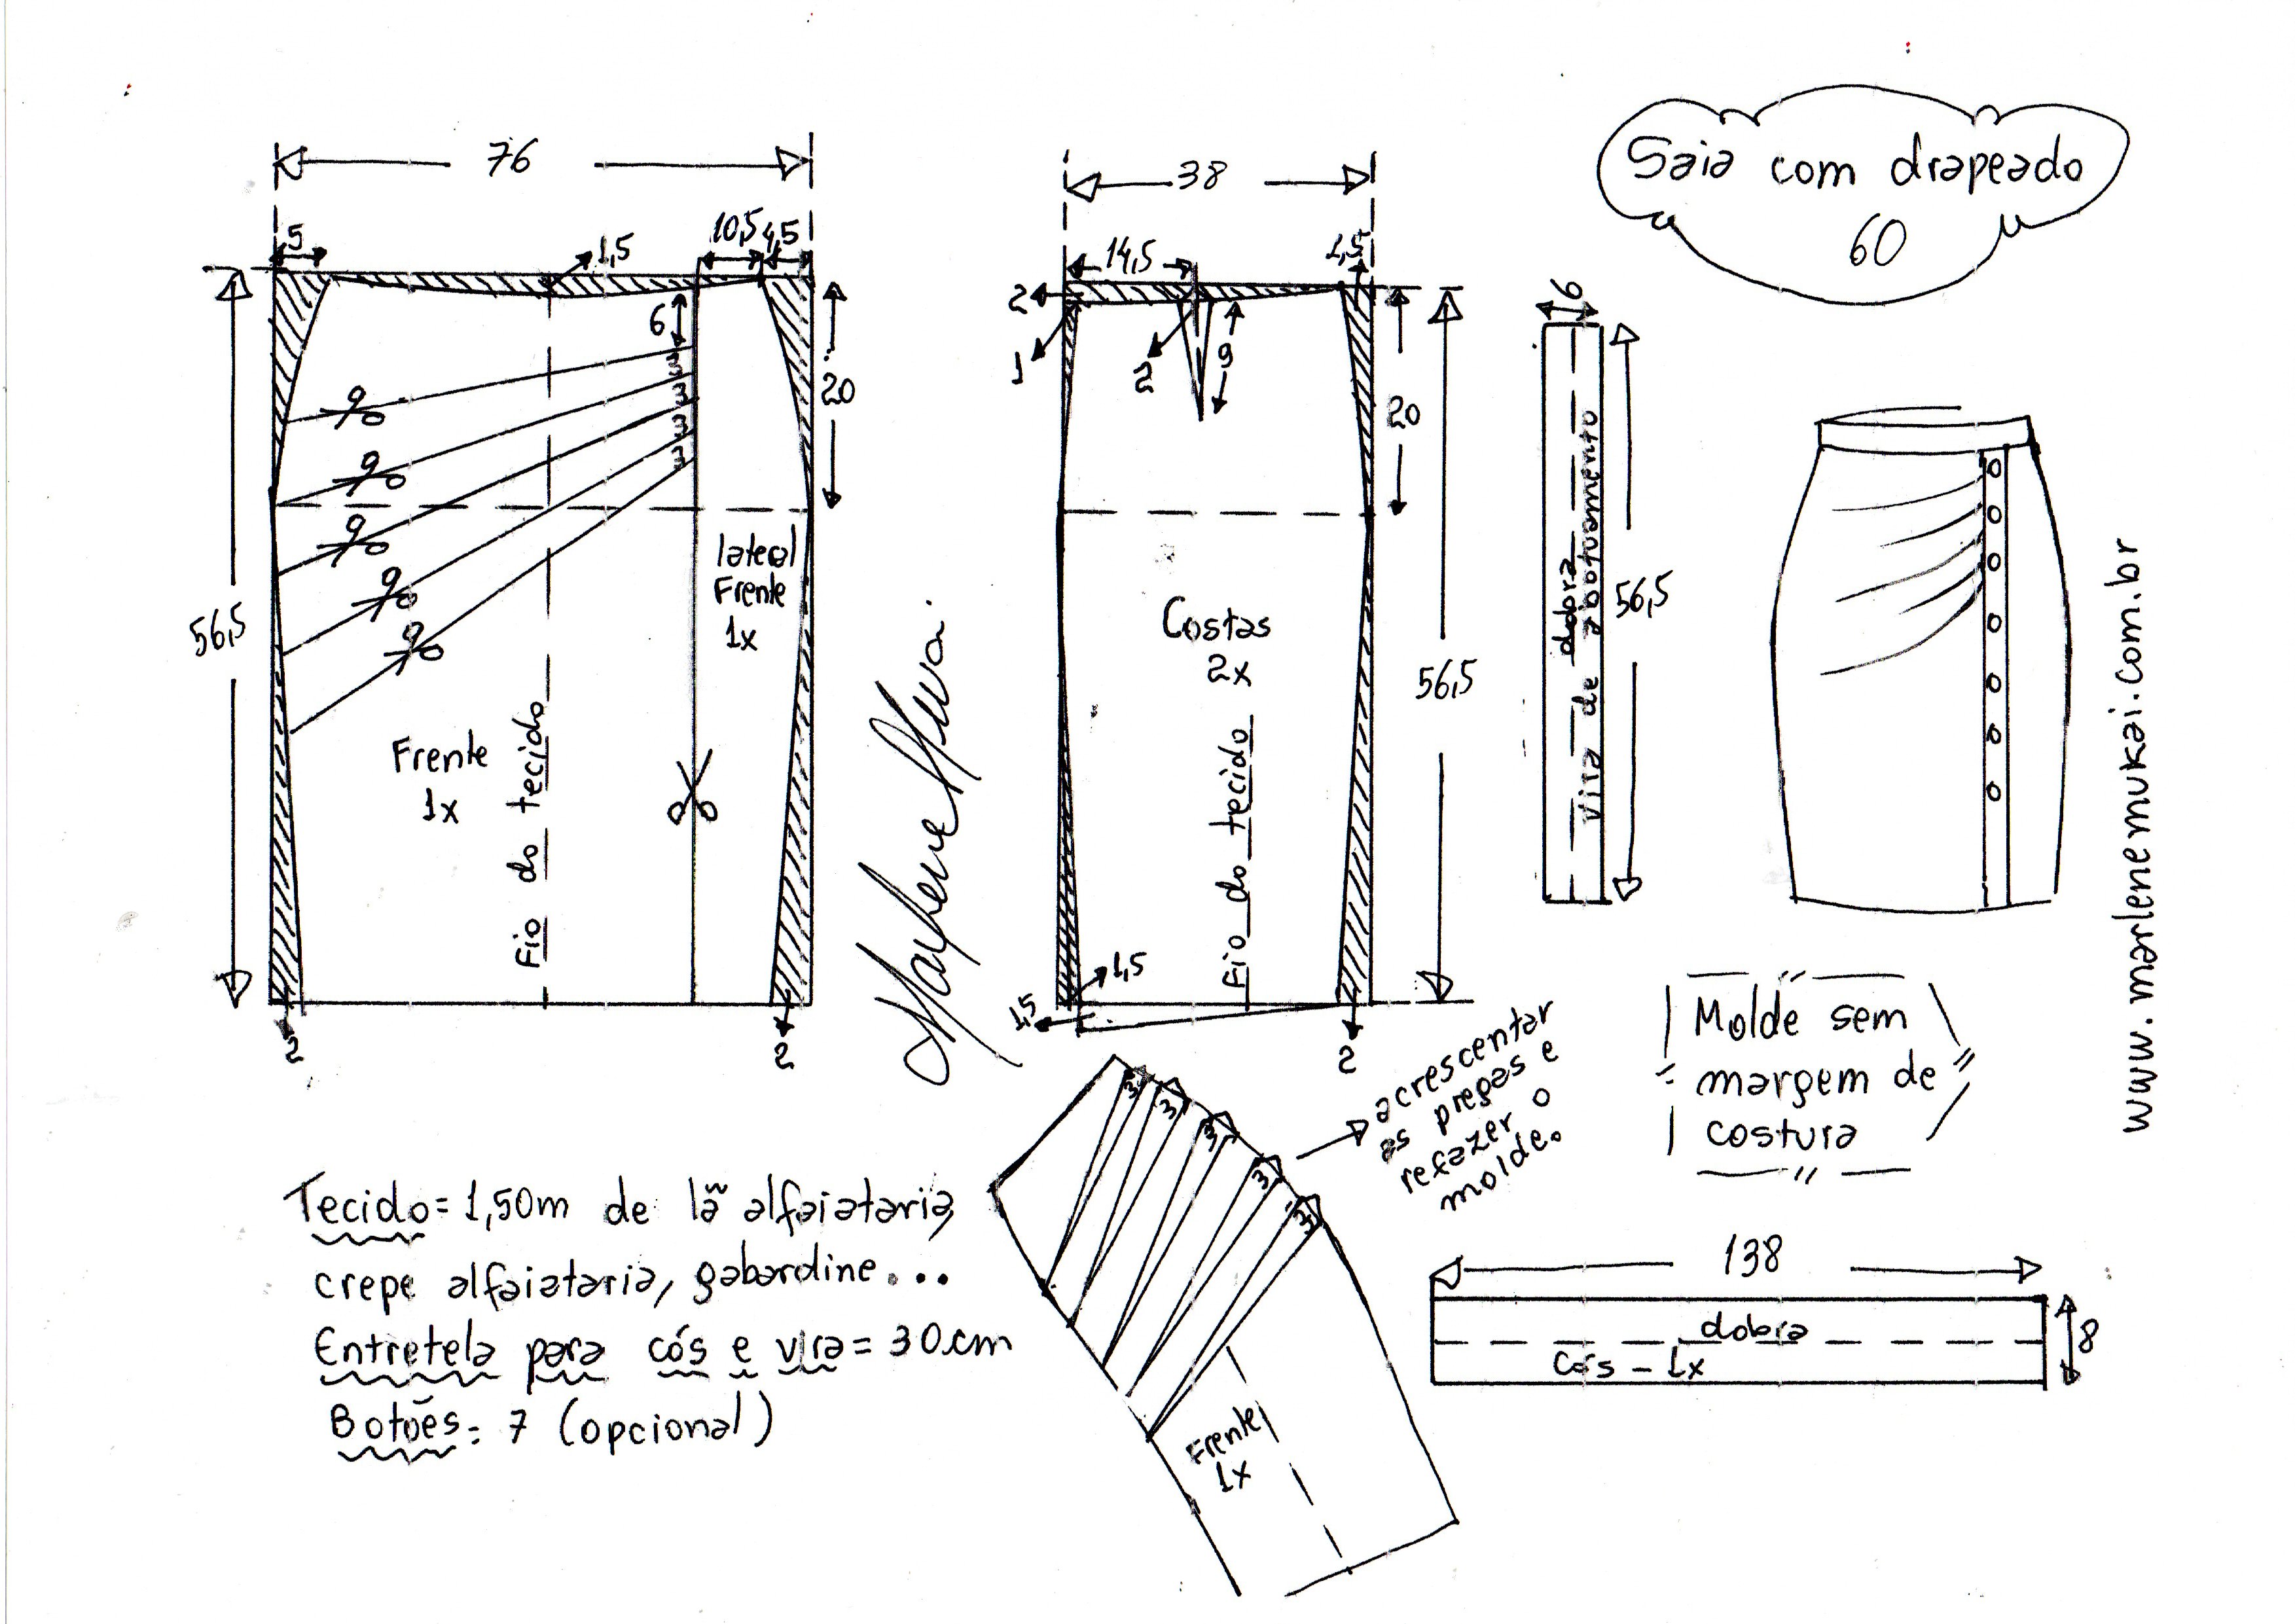 Saia com drapeado
60
76
5
1,5
10,5
4,5
6
3
3
3
3
20
56,5
lateral
Frente
1x
Frente
1x
Fio do tecido
2
2
38
14,5
1,5
2
1
2
9
20
56,5
Costas
2x
Fio do tecido
1,5
1,5
2
6
dobra
vira de abotuamento
56,5
www.marlenemukai.com.br
Molde sem
margem de
costura
acrescentar
as pregas e
refazer o
molde.
3
3
3
3
3
Frente
1x
138
dobra
cós - 1x
8
Tecido= 1,50m de lã alfaiataria,
crepe alfaiataria, gabardine...
Entretela para cós e vira= 30cm
Botões= 7 (opcional)